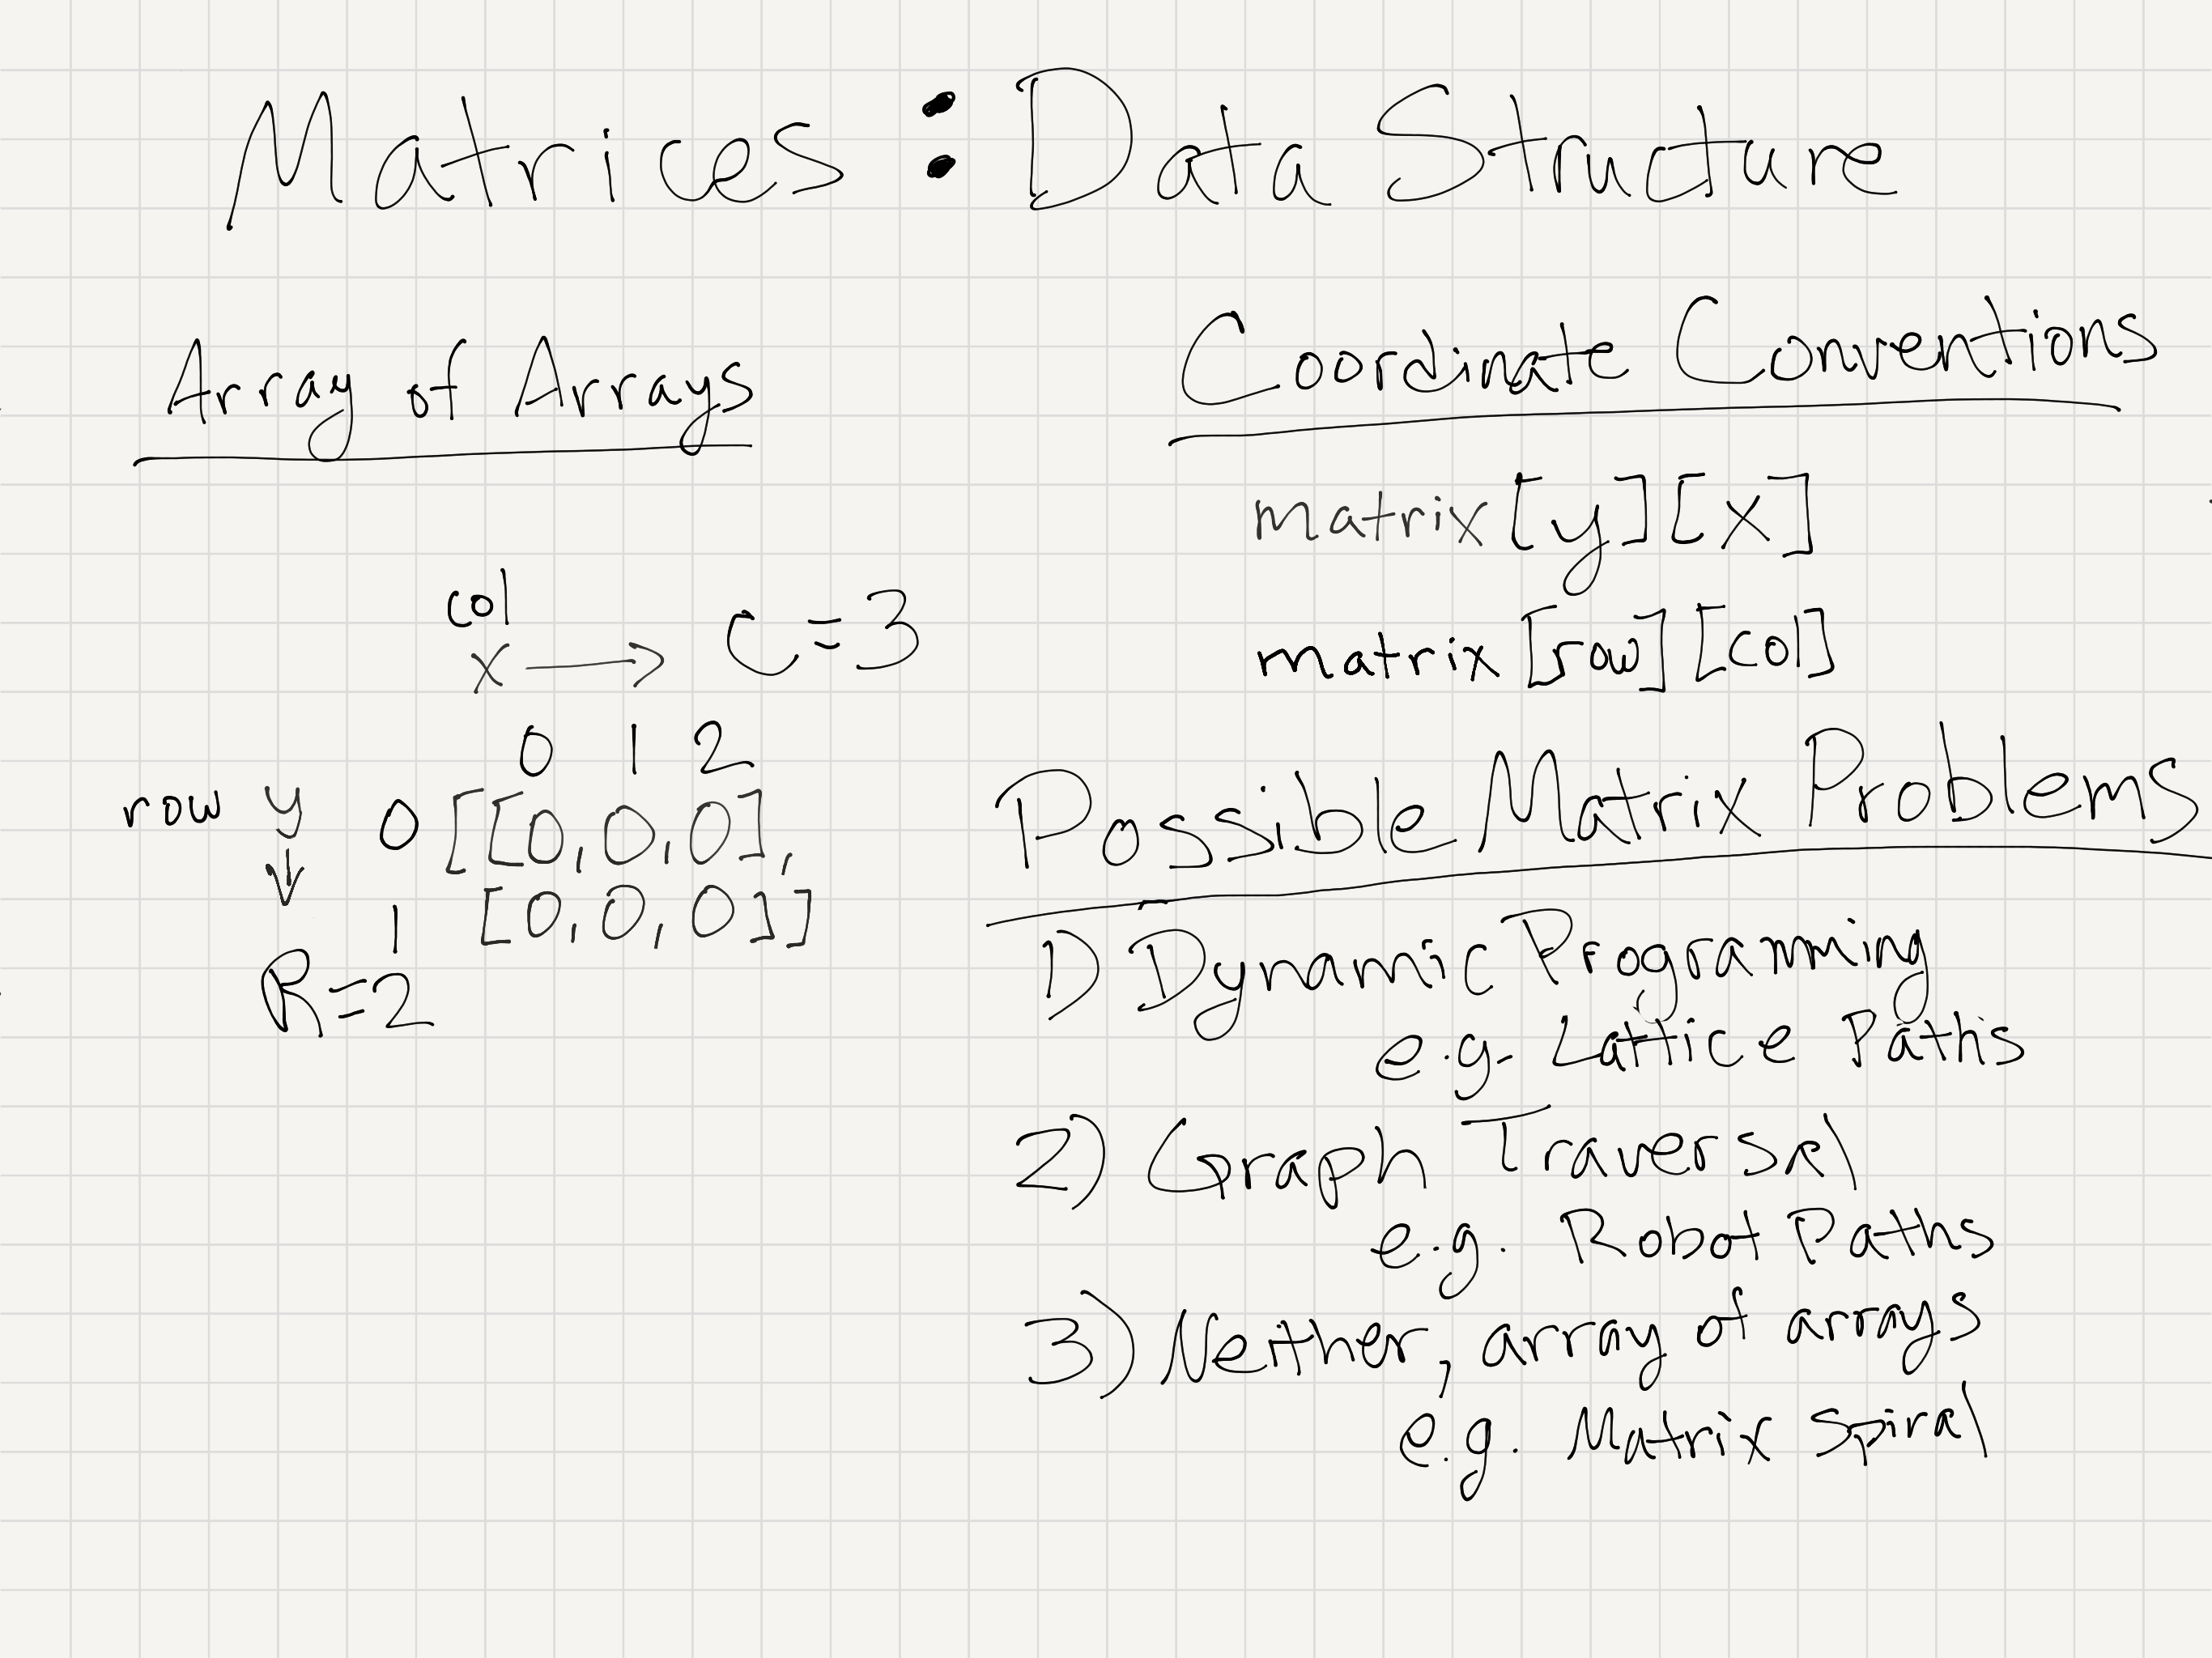 Matrices : Data Structure
Array of Arrays
col
x → C=3
0 1 2
row y 0 [[0,0,0],
↓
1 [0,0,0]]
R=2
Coordinate Conventions
matrix[y][x]
matrix[row][col]
Possible Matrix Problems
1) Dynamic Programming
e.g. Lattice Paths
2) Graph Traversal
e.g. Robot Paths
3) Neither, array of arrays
e.g. Matrix Spiral